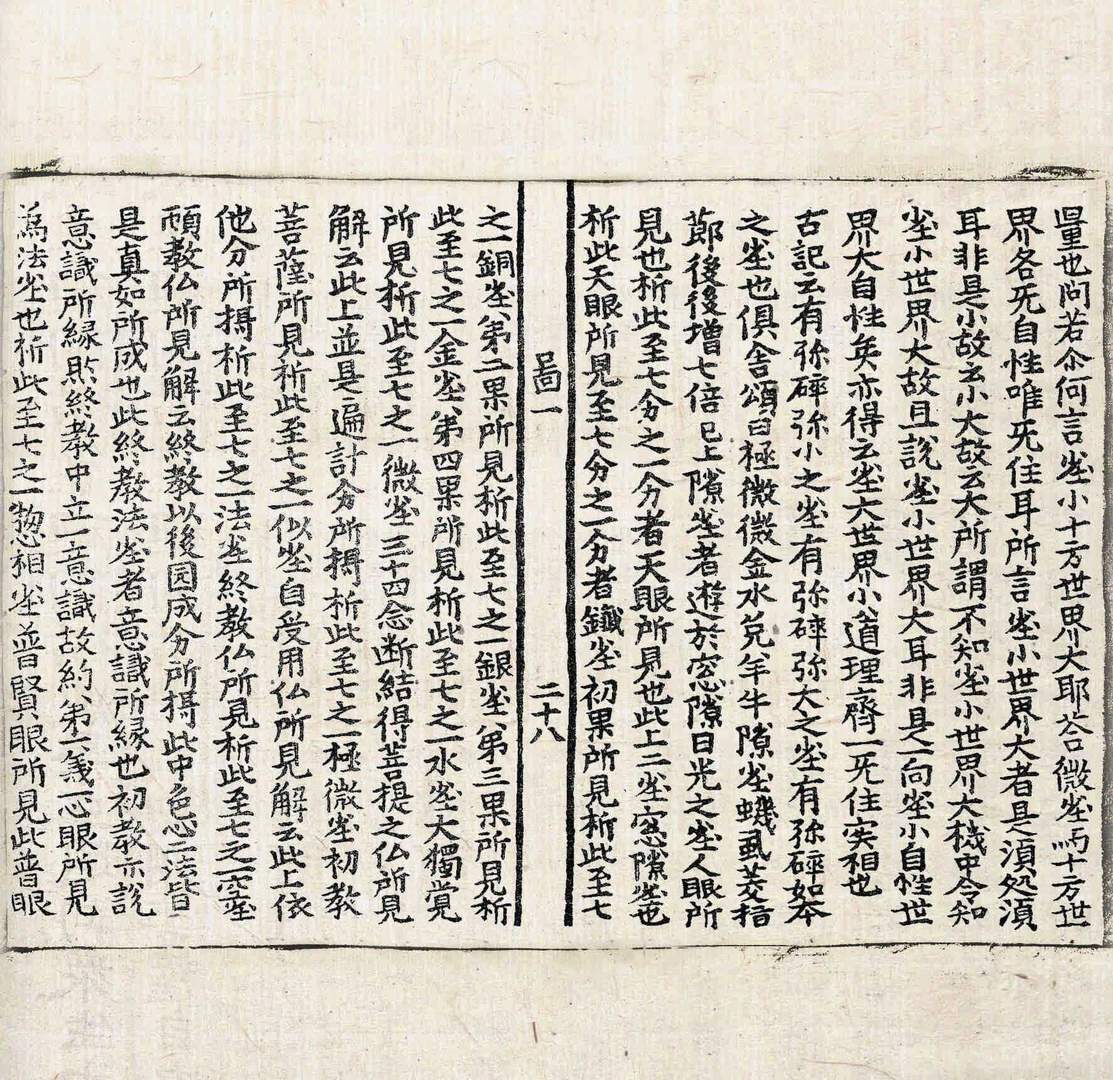 量也問若尒何言尘小十方世界大耶荅微尘与十方世
界各无自性唯无住耳所言尘小世界大者是湏処湏
耳非是小故云小大故云大所謂不知尘小世界大機中令知
尘小世界大故且說尘小世界大耳非是一向尘小自性世
界大自性矣亦得云尘大世界小道理齊一无住实相也
古記云有弥碎弥小之尘有弥碎弥大之尘有弥碎如本
之尘也俱舍頌曰極微微金水兔羊牛隙尘蟣虱麦指
莭後後增七倍已上隙尘者遊於窓隙日光之尘人眼所
見也析此至七分之一分者天眼所見也此上二尘窓隙尘也
析此天眼所見至七分之一分者鐵尘初果所見析此至七
啚一 二十八
之一銅尘第二果所見析此至七之一銀尘第三果所見析
此至七之一金尘第四果所見析此至七之一水尘大獨覚
所見析此至七之一微尘三十四念断結得菩提之仏所見
解云此上並是遍計分所攝析此至七之一極微尘初教
菩薩所見析此至七之一似尘自受用仏所見解云此上依
他分所攝析此至七之一法尘終教仏所見析此至七之一空尘
頓教仏所見解云終教以後圎成分所攝此中色心二法皆
是真如所成也此終教法尘者意識所縁也初教亦說
意識所縁然終教中立一意識故約第一義心眼所見
為法尘也析此至七之一惣相尘普賢眼所見此普眼